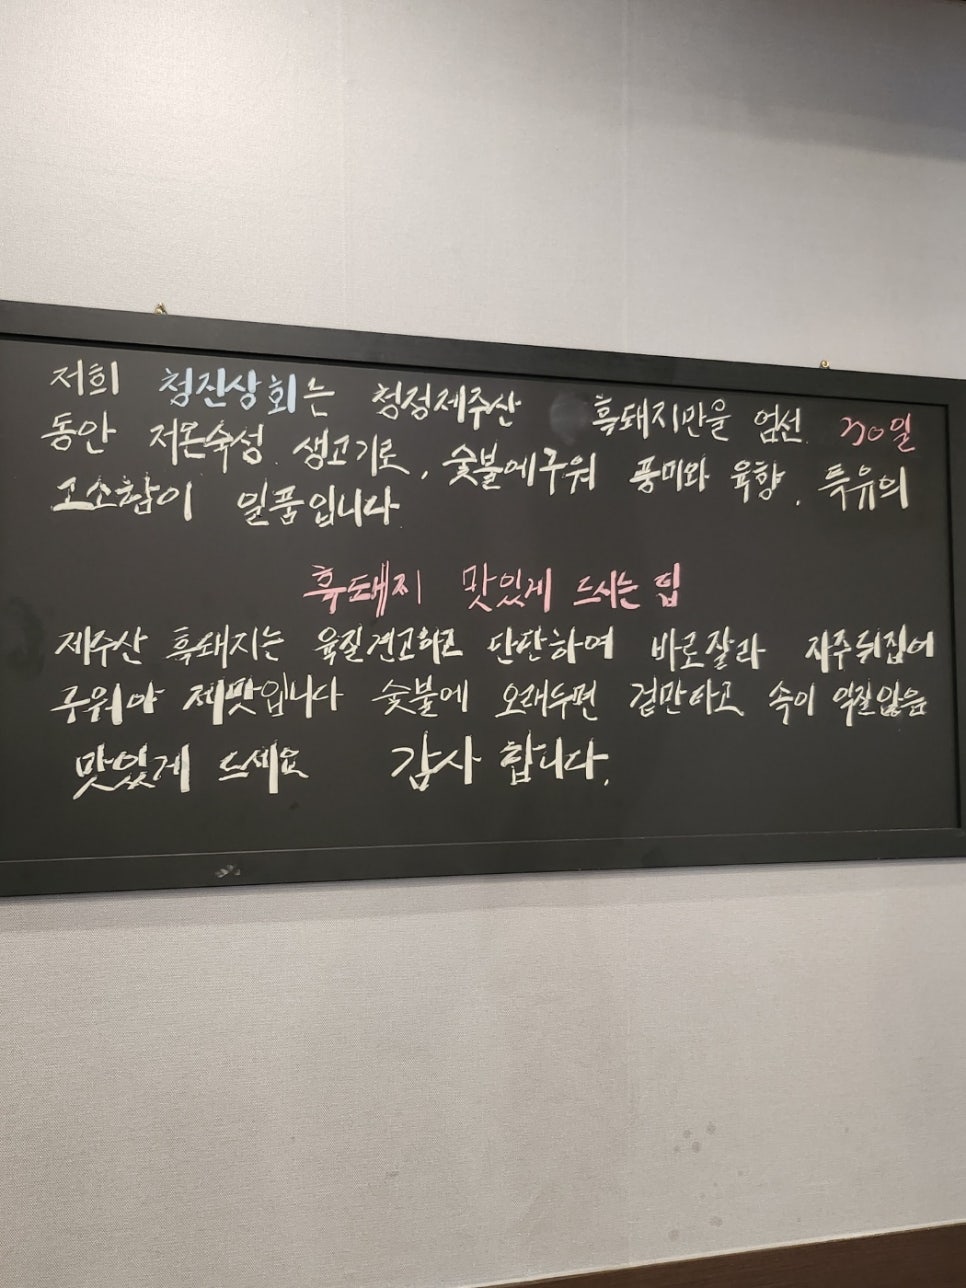 저희 청진상회는 청정제주산 흑돼지만을 엄선 30일
동안 저온숙성 생고기로, 숯불에구워 풍미와 육향, 특유의
고소함이 일품입니다
흑돼지 맛있게 드시는 팁
제주산 흑돼지는 육질견고하고 단단하여 바로잘라 자주뒤집어
구워야 제맛입니다 숯불에 오래두면 겉만타고 속이
맛있게 드세요 감사 합니다.